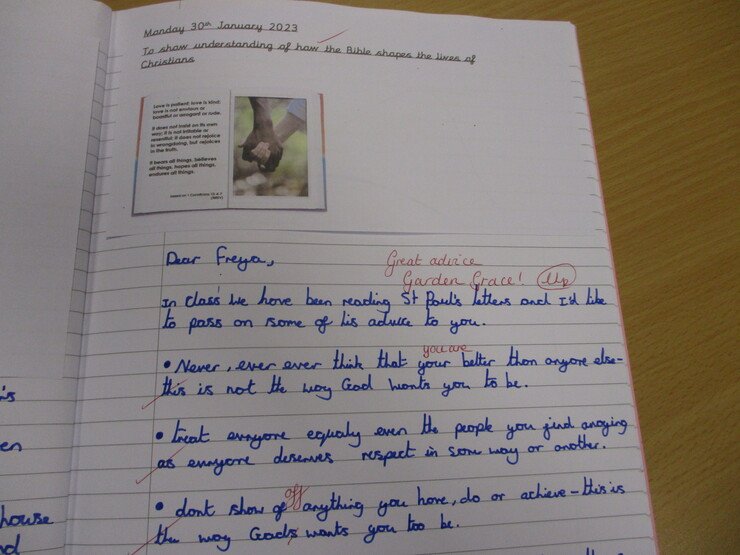 Monday 30th January 2023
To show understanding of how the Bible shapes the lives of
Christians
Love is patient; love is kind;
love is not envious or
boastful or arrogant or rude.
It does not insist on its own
way; it is not irritable or
resentful; it does not rejoice
in wrongdoing, but rejoices
in the truth.
It bears all things, believes
all things, hopes all things,
endures all things.
(NRSV)
Dear Freya,
Great advice
Garden Grace! 
In class we have been reading St Paul's letters and I'd like
to pass on some of his advice to you.
you are
• Never, ever ever think that your better than anyone else-
this is not the way God wants you to be.
• treat everyone equaly even the people you find anoying
as everyone deserves respect in some way or another.
off
• dont show of anything you have, do or achieve - this is
the way Gods wants you too be.
's
en
house
nd